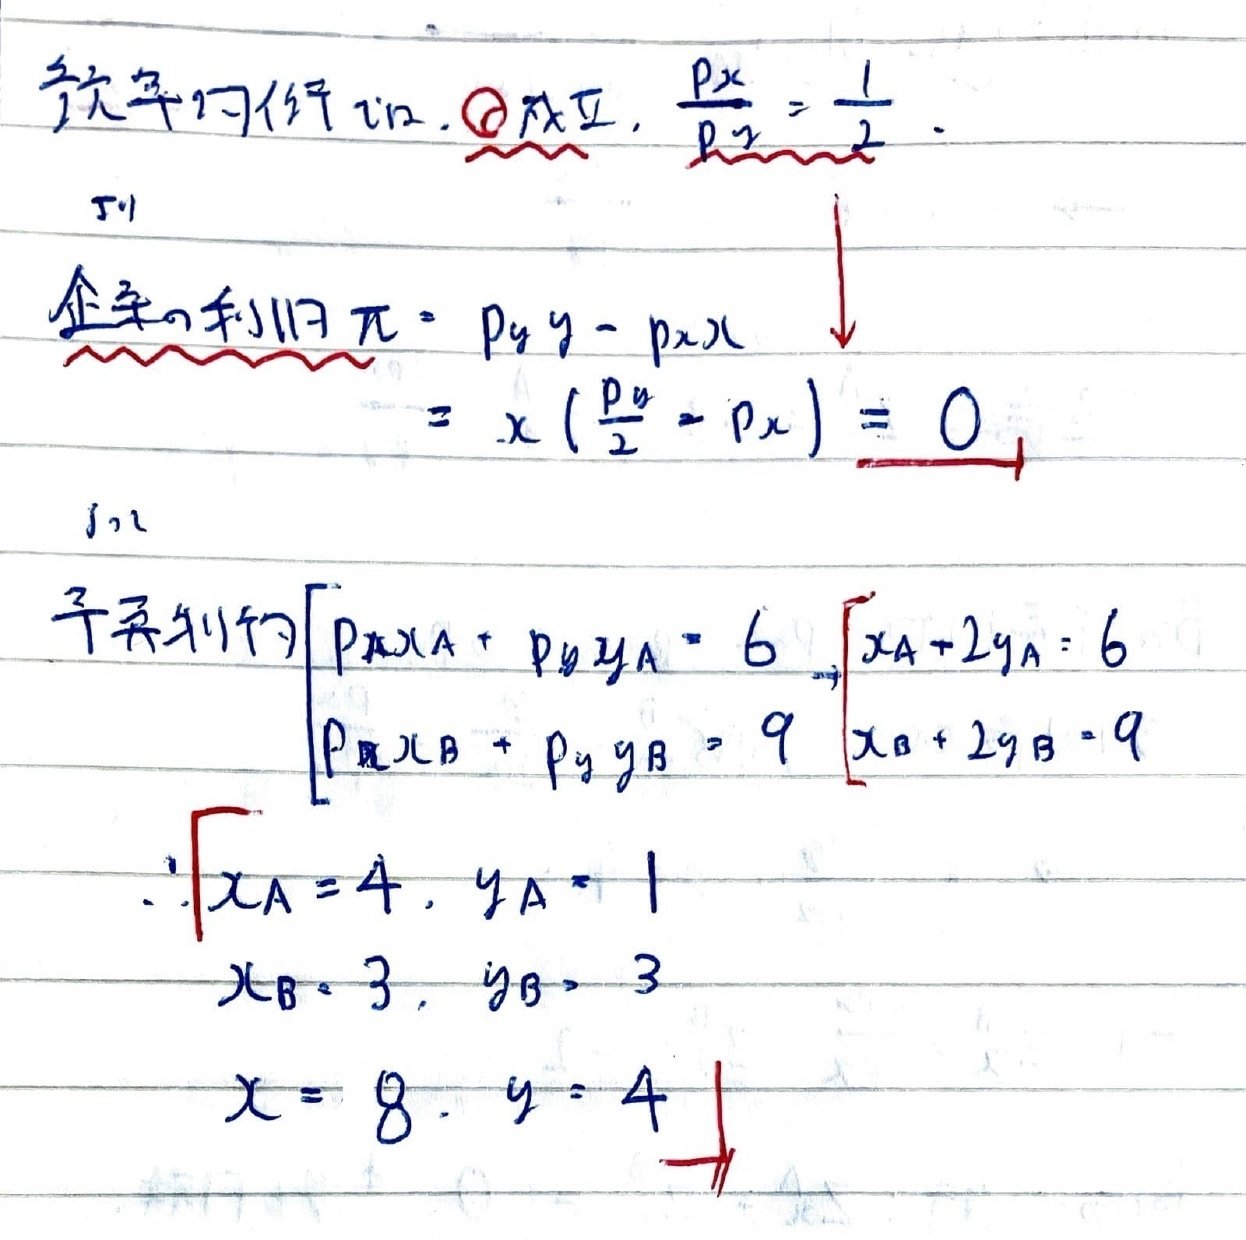 競争均衡では、②成立、px/py = 1/2.
より
企業の利潤 π = py y - px x
= x (py/2 - px) = 0
よって
予算制約 [ px xA + py yA = 6 → [ xA + 2yA = 6
px xB + py yB = 9 xB + 2yB = 9
∴ xA = 4, yA = 1
xB = 3, yB = 3
x = 8, y = 4